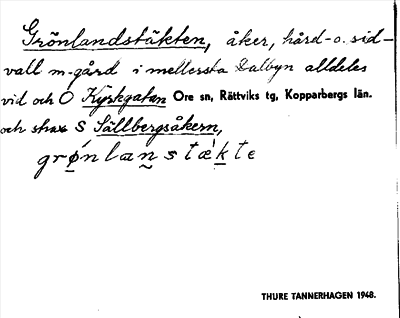 Grönlandstäkten, åker, hård- o. sid-
vall m. gård i mellersta Dalbyn alldeles
vid och Ö Kyrkgatan Ore sn, Rättviks tg, Kopparbergs län.
och strax S Sällbergsåkern,
grǿnlanstækte
THURE TANNERHAGEN 1948.